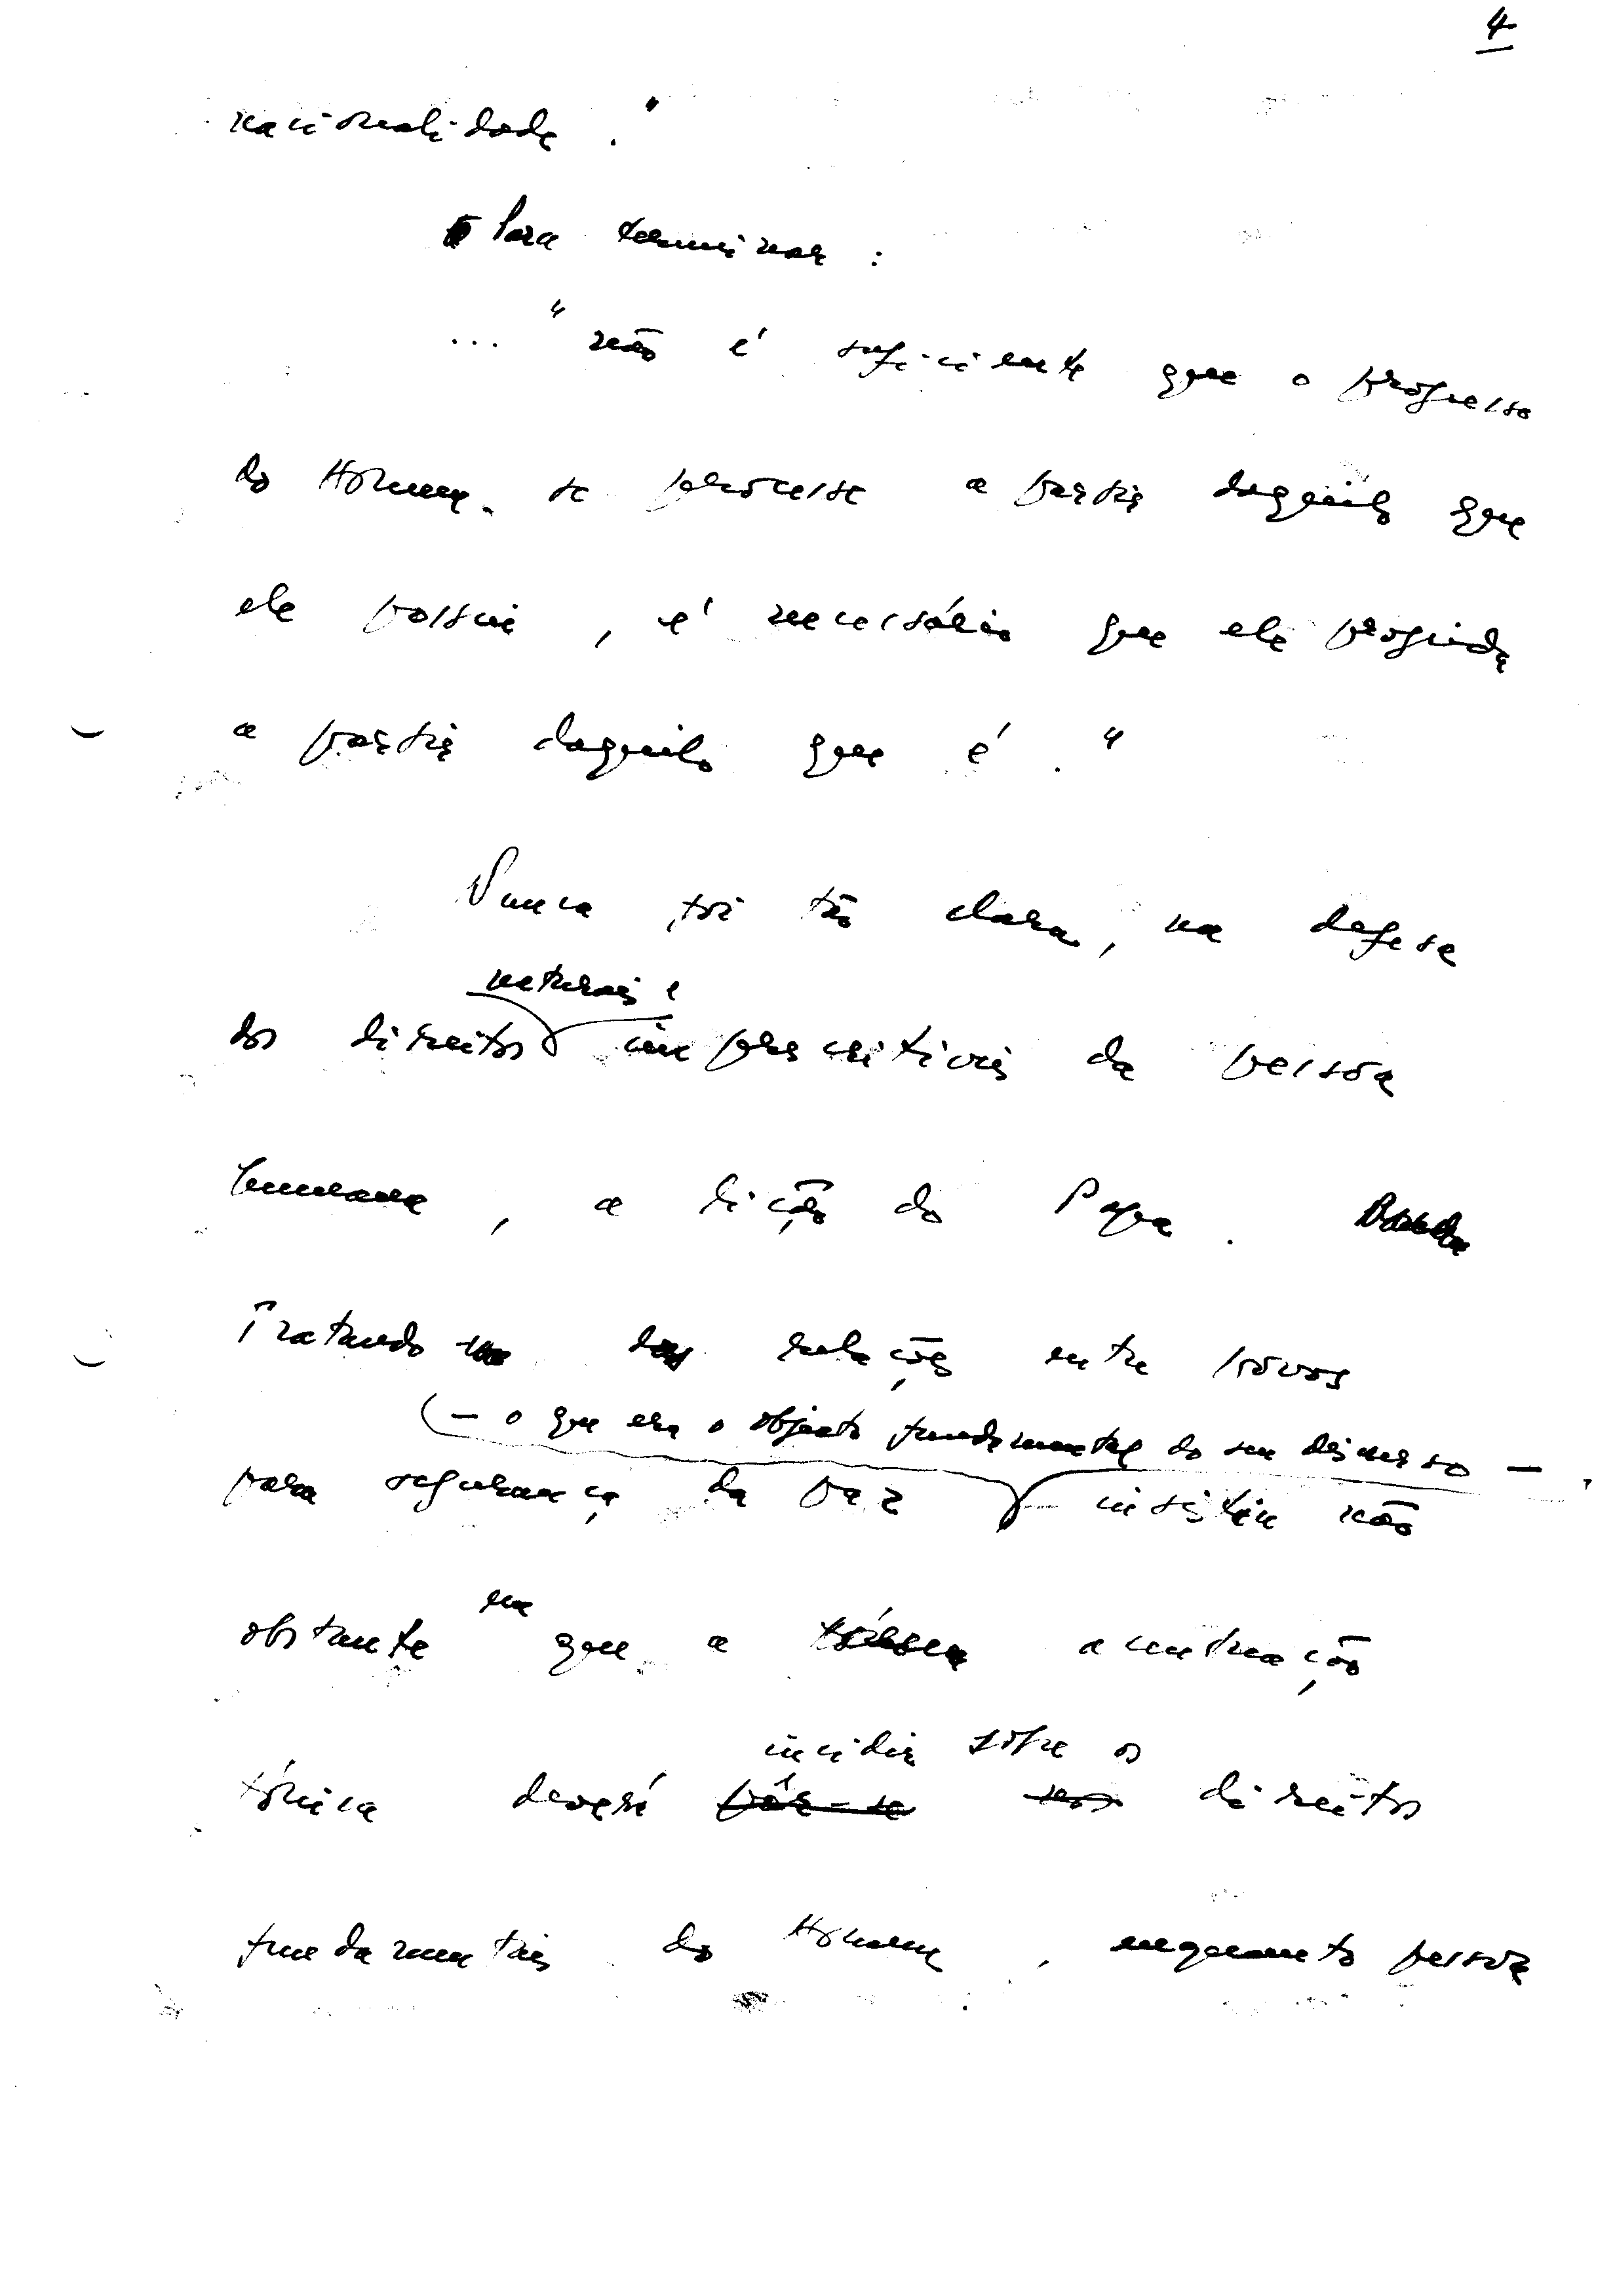 4
nacionalidade."
Para terminar:
... "não é suficiente que o progresso
do Homem se processe a partir daquilo que
ele possui, é necessário que ele progrida
a partir daquilo que é."
Nunca foi tão clara, na defesa
naturais e
dos direitos imprescritíveis da pessoa
humana, a lição do Papa.
Tratando das relações entre povos
(— o que era o objecto fundamental do seu discurso —
para segurança da paz insistiu não
na
obstante que a acentuação
incidir sobre os
tónica deverá pôr-se nos direitos
fundamentais do Homem, enquanto pessoa